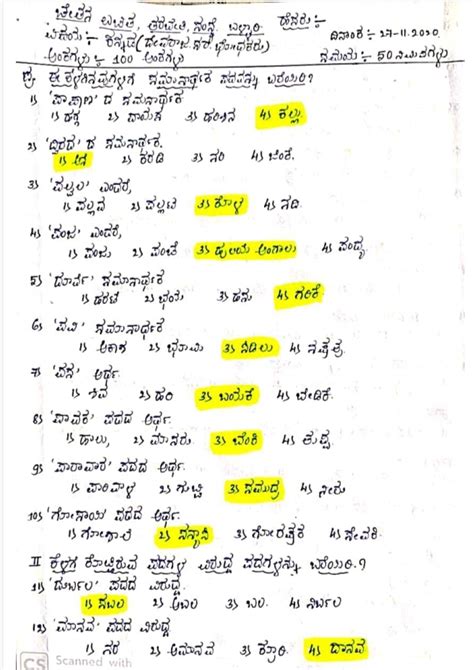 ಉಚಿತ, ತರಬೇತಿ, ಸಂಸ್ಥೆ, ಬಳ್ಳಾರಿ ಹೆಸರು:-
ವಿಷಯ:- ಕನ್ನಡ (ದೇವರಾಜ. ಸರ್ ಭೋಧಕರು) ದಿನಾಂಕ :- 27-11-2020
ಅಂಕಗಳು :- 100 ಅಂಕಗಳು ಸಮಯ :- 50 ನಿಮಿಷಗಳು
ಈ ಕೆಳಗಿನವುಗಳಿಗೆ ಸಮಾನಾರ್ಥಕ ಪದವನ್ನು ಬರೆಯಿರಿ?
1) 'ಪಾಷಾಣ' ದ ಸಮಾನಾರ್ಥಕ
4) ಕಲ್ಲು
2) 'ದ್ವಿರದ' ದ ಸಮಾನಾರ್ಥಕ.
1) ಆನೆ 2) ಕರಡಿ 3) ನರಿ 4) ಜಿಂಕೆ.
3) 'ಪಲ್ವಲ' ಎಂದರೆ,
1) ಪಲ್ಲವ 2) ಪಲ್ಲಟ 3) ಕೊಳ 4) ನದಿ.
4) 'ಪಂಜ' ಎಂದರೆ,
1) ಪಂಜು 2) ಪಂಚೆ 3) ಹುಲಿಯ ಅಂಗಾಲು 4) ಪಂದ್ಯ
5) 'ದೂರ್ವೆ' ಸಮಾನಾರ್ಥಕ
1) ಹರಟೆ 2) ಭಯ 3) ಹಸು 4) ಗರಿಕೆ.
6) 'ಪವಿ' ಸಮಾನಾರ್ಥಕ
1) ಆಕಾಶ 2) ಭೂಮಿ 3) ಸಿಡಿಲು 4) ನಕ್ಷತ್ರ.
ಅರ್ಥ.
1) ಶಿವ 3) ಬಯಕೆ 4) ಬೇಡಿಕೆ.
8) 'ಪಾವಕ' ಪದದ ಅರ್ಥ.
1) ಹಾಲು, 2) ಮೊಸರು 3) ಬೆಂಕಿ 4) ತುಪ್ಪ.
9) 'ಪಾರಾವಾರ' ಪದದ ಅರ್ಥ
1) ಪಾರಿವಾಳ 2) ಗುಬ್ಬಿ 3) ಸಮುದ್ರ 4) ನೀರು
10) 'ಗೋಸಾಯಿ' ಪದದ ಅರ್ಥ.
1) ಗೋಶಾಲೆ 2) ಸನ್ಯಾಸಿ 3) ಗೋರಕ್ಷಕ 4) ಸೇವಕಿ.
II ಕೆಳಗೆ ಕೊಟ್ಟಿರುವ ಪದಗಳ ವಿರುದ್ಧ ಪದಗಳನ್ನು ಬರೆಯಿರಿ.?
11) 'ದುರ್ಬಲ' ಪದದ ವಿರುದ್ಧ.
1) ಸಬಲ 2) ಅಬಲ 3) ಬಲ. 4) ನಿರ್ಬಲ
12) 'ಮಾನವ' ಪದದ ವಿರುದ್ಧ
1) ನರ 2) ಅಮಾನವ 3) ಕ್ರೂರಿ. 4) ದಾನವ
CS Scanned with